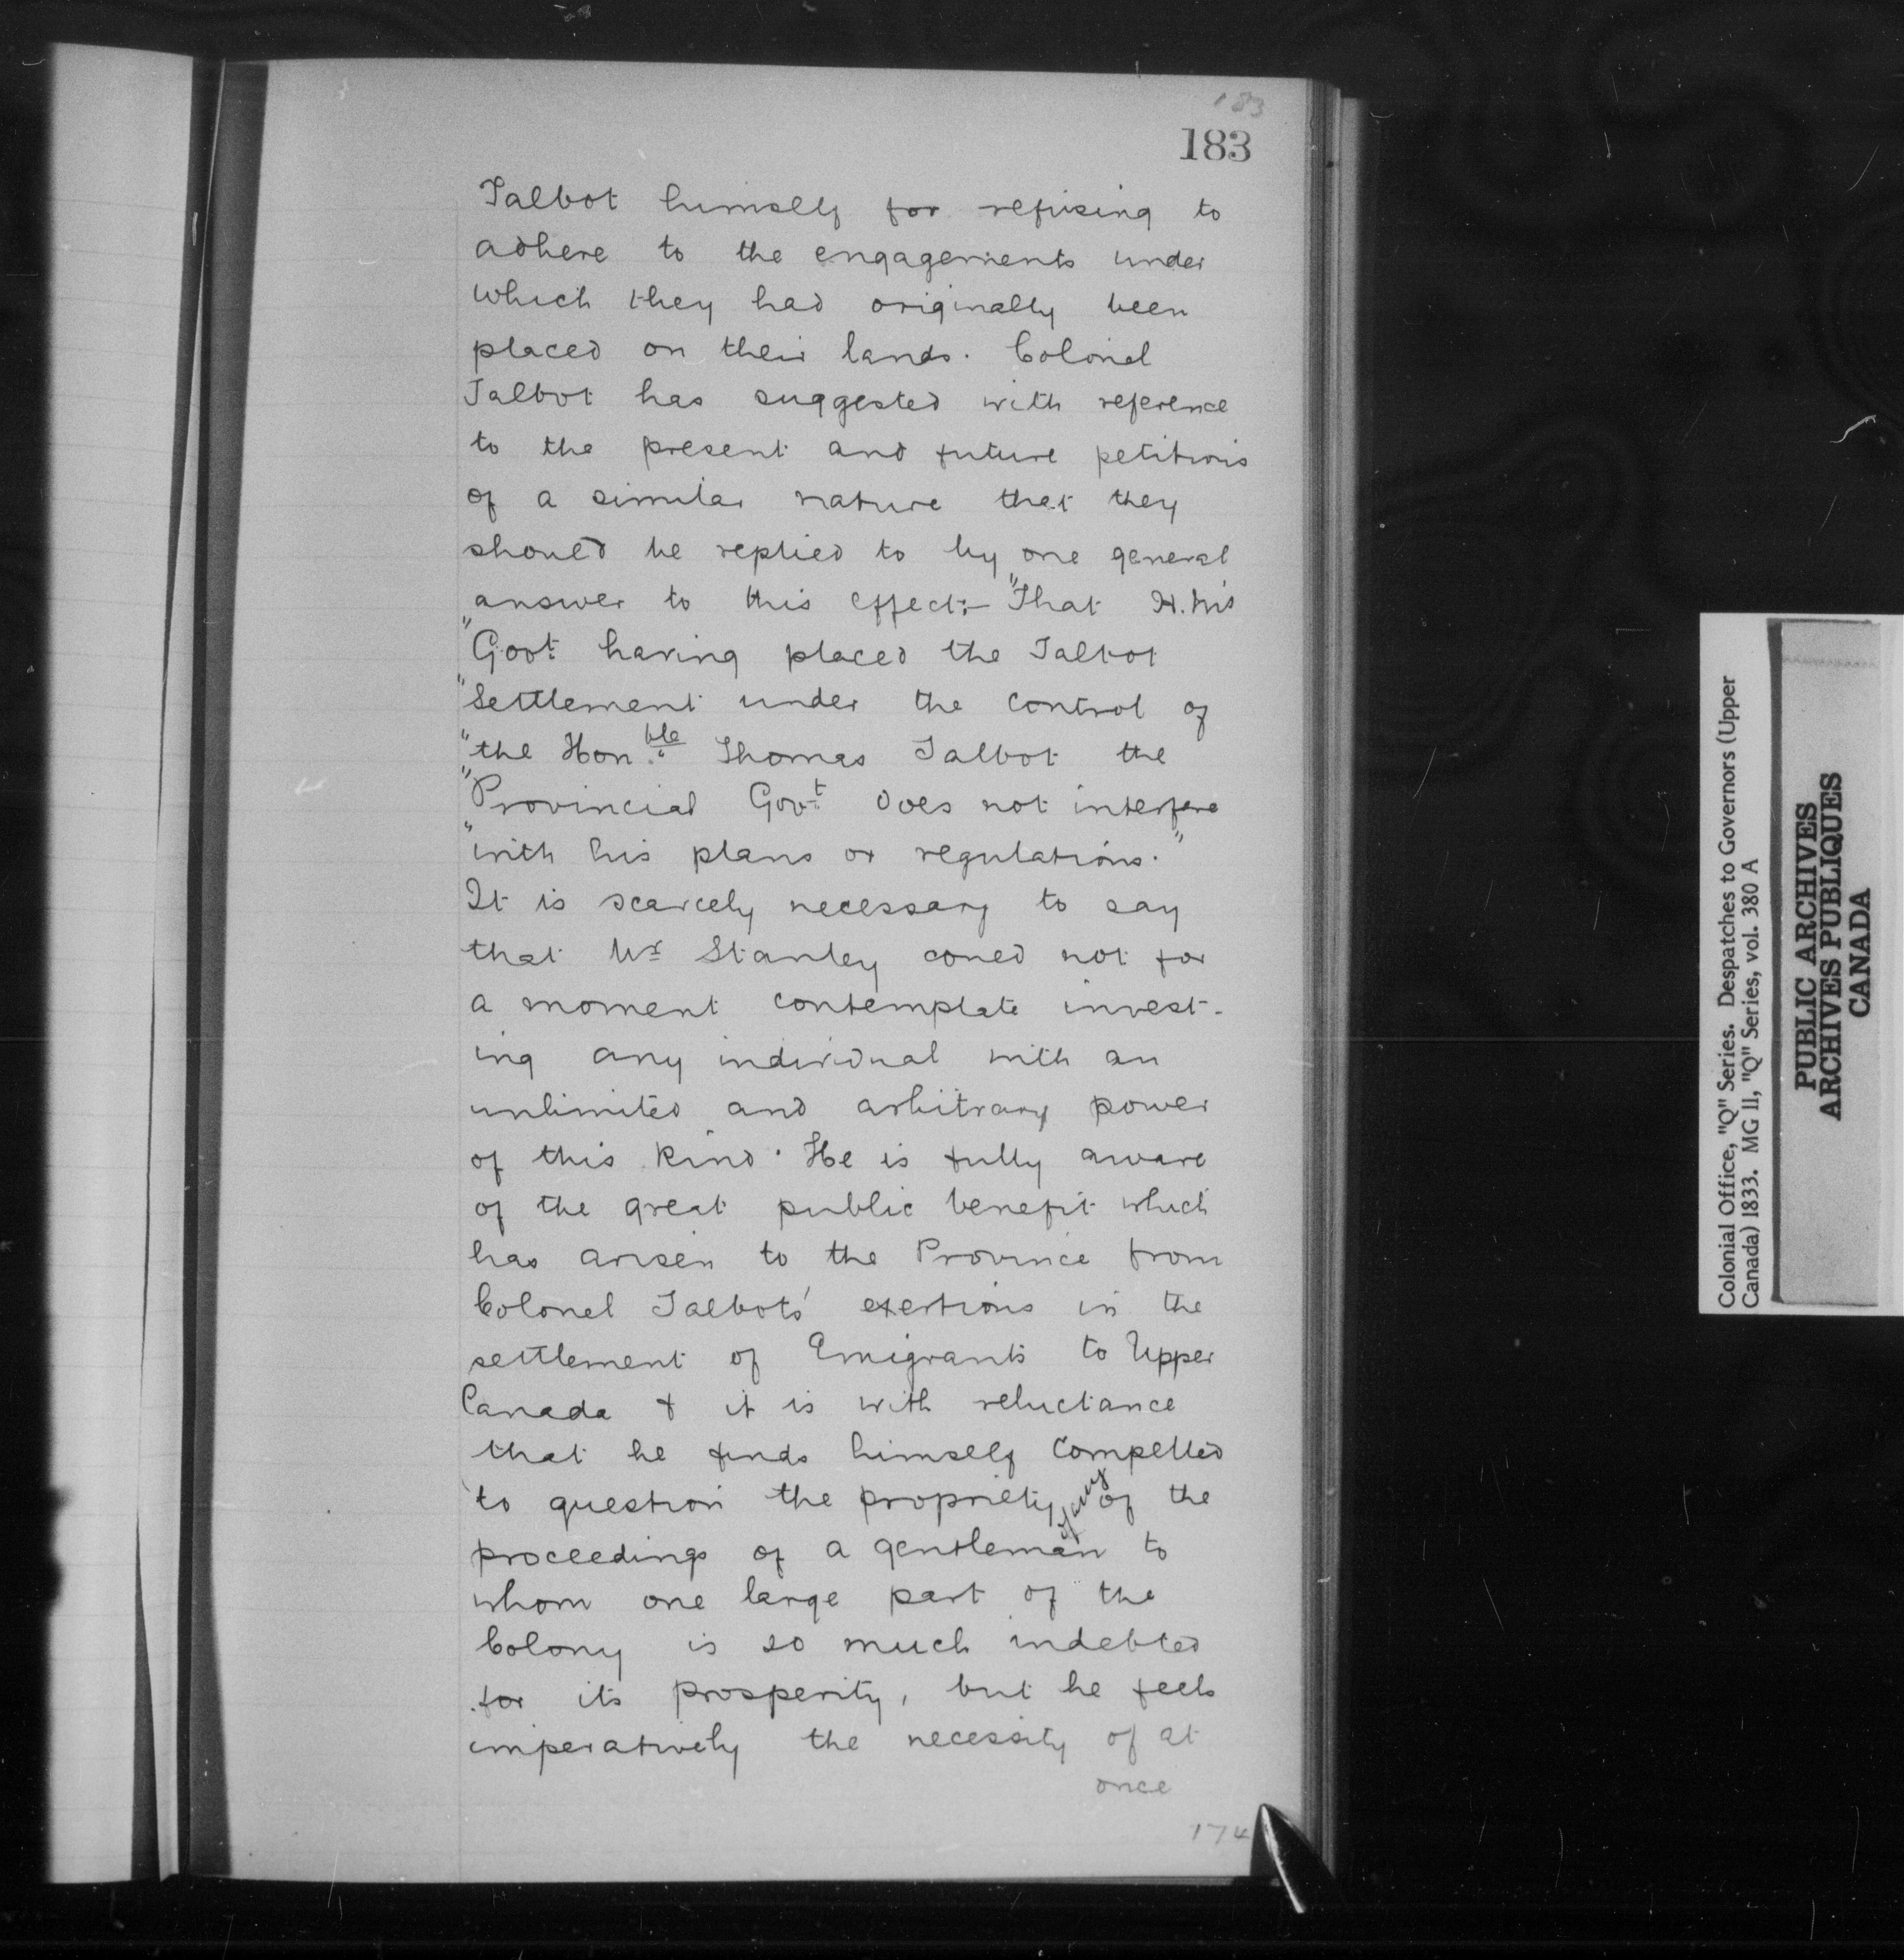 183
183
Talbot himself for refusing to
adhere to the engagements under
which they had originally been
placed on their lands. Colonel
Talbot has suggested with reference
to the present and future petitions
of a similar nature that they
should be replied to by one general
answer to this effect:- "That H.M's
"Govt. having placed the Talbot
"Settlement under the control of
"the Honble Thomas Talbot the
"Provincial Govt. does not interfere
"with his plans or regulations."
It is scarcely necessary to say
that Mr Stanley could not for
a moment contemplate invest-
ing any individual with an
unlimited and arbitrary power
of this kind. He is fully aware
of the great public benefit which
has arisen to the Province from
Colonel Talbots' exertions in the
settlement of Emigrants to Upper
Canada & it is with reluctance
that he finds himself compelled
to question the propriety of any of the
proceedings of a gentleman to
whom one large part of the
Colony is so much indebted
for its prosperity, but he feels
imperatively the necessity of at
once
174
Colonial Office, "Q" Series. Despatches to Governors (Upper
Canada) 1833. MG 11, "Q" Series, vol. 380 A
PUBLIC ARCHIVES
ARCHIVES PUBLIQUES
CANADA